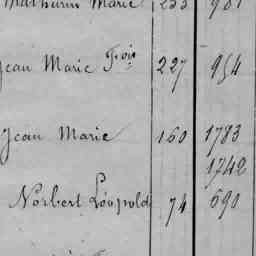 Mathurin Marie 233 981
Jean Marie Fois 227 954
Jean Marie 160 1783
1742
Norbert Léopold 74 690